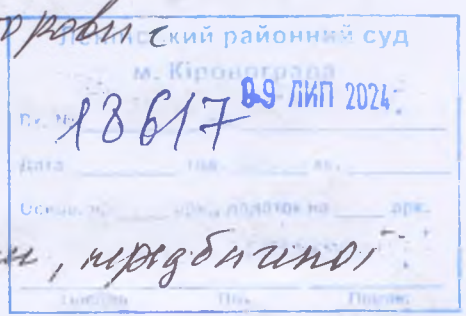 Ленінський районний суд
м. Кіровограда
Вх. № 18617 09 ЛИП 2024
Дата год. хв.
Основ. на арк., додаток на арк.
, передбаченої
Підпис